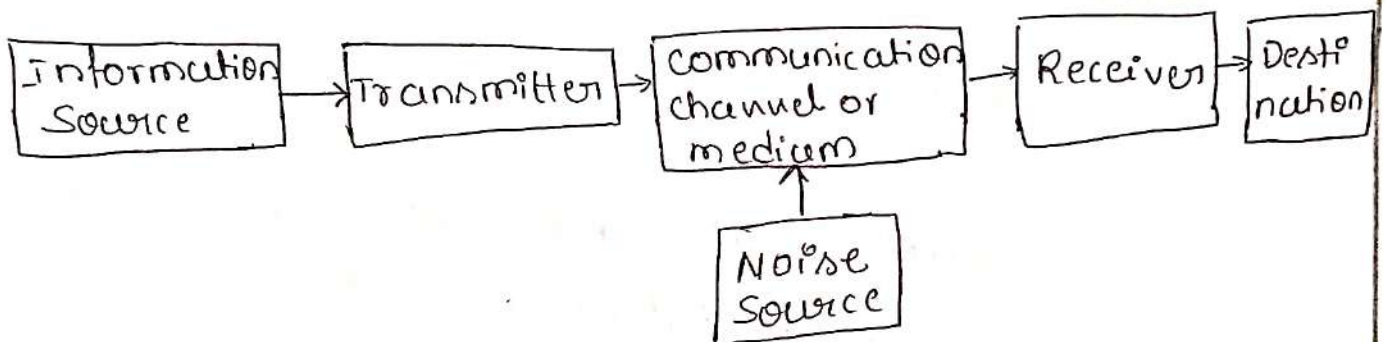 Information
Source
Transmitter
communication
channel or
medium
Receiver
Desti
nation
Noise
Source